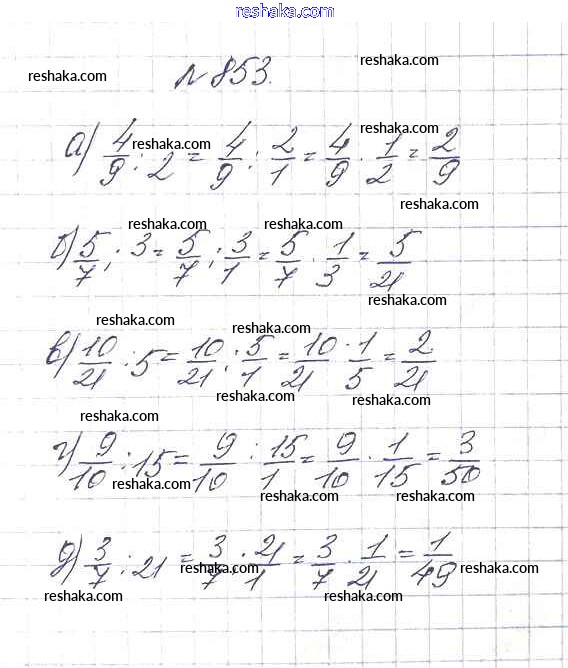 reshaka.com
reshaka.com
reshaka.com
№ 853.
reshaka.com
reshaka.com
а) 4/9 : 2 = 4/9 : 2/1 = 4/9 · 1/2 = 2/9
reshaka.com
reshaka.com reshaka.com
б) 5/7 : 3 = 5/7 : 3/1 = 5/7 · 1/3 = 5/21
reshaka.com
reshaka.com
reshaka.com
в) 10/21 : 5 = 10/21 : 5/1 = 10/21 · 1/5 = 2/21
reshaka.com
reshaka.com
reshaka.com
г) 9/10 : 15 = 9/10 : 15/1 = 9/10 · 1/15 = 3/50
reshaka.com
reshaka.com reshaka.com
reshaka.com
д) 3/7 : 21 = 3/7 : 21/1 = 3/7 · 1/21 = 1/49
reshaka.com reshaka.com
reshaka.com reshaka.com